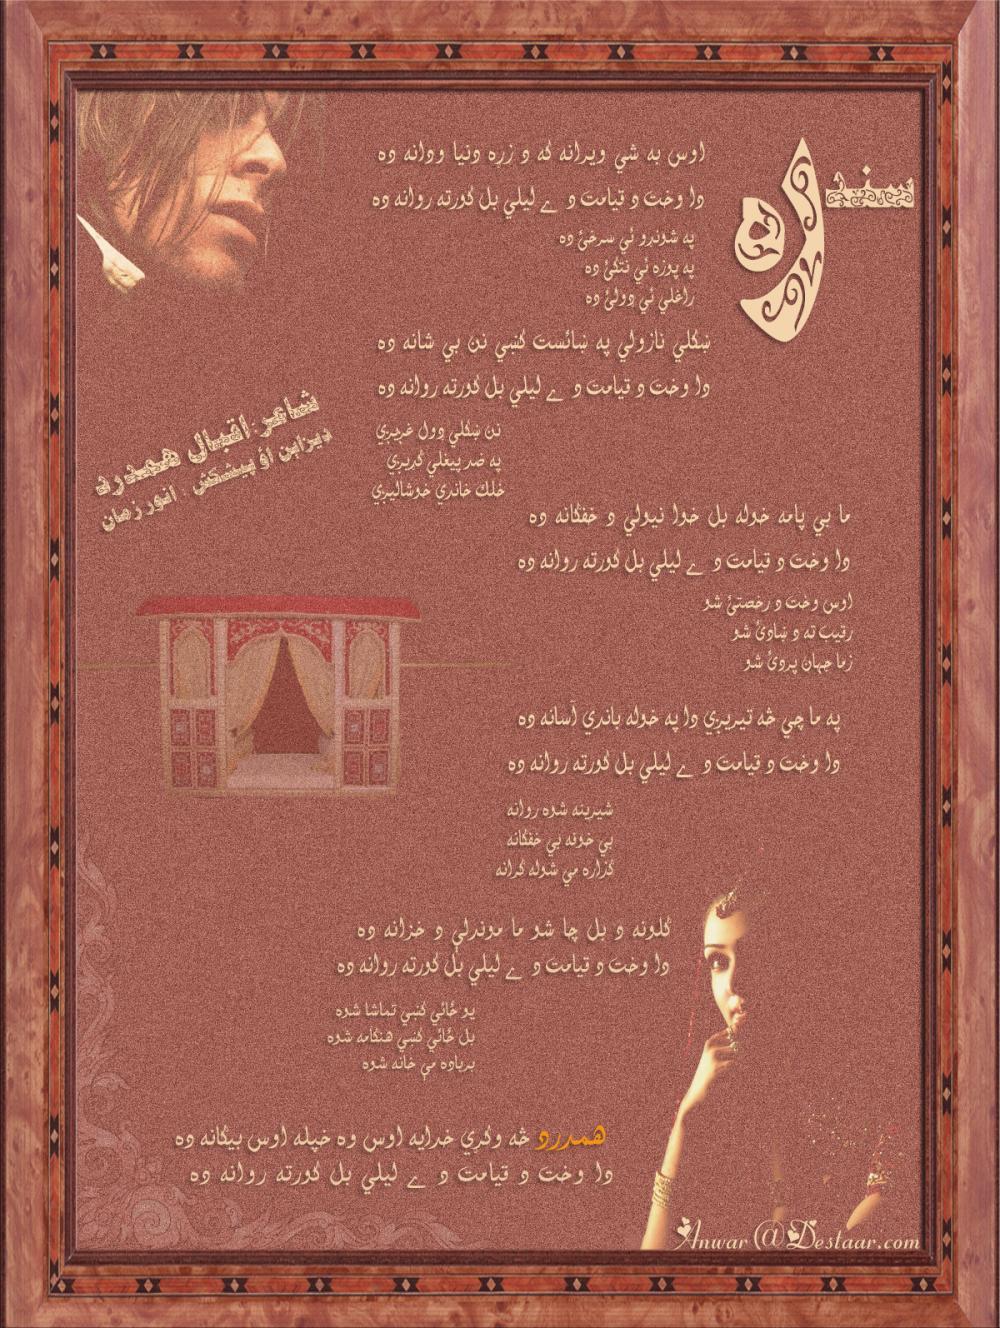 سندره
اوس به شي ويرانه که د زړه دنيا ودانه ده
دا وخت د قيامت د ے ليلي بل کورته روانه ده
په شونډو ئي سرخئ ده
په پوزه ئي نتکئ ده
راغلي ئي ډولئ ده
ښکلي نازولي په ښائست کښي نن بي شانه ده
دا وخت د قيامت د ے ليلي بل کورته روانه ده
نن ښکلي ډول غږيږي
په ضد پيغلي ګډيږي
خلک خاندي خوشاليږي
ما بي پامه خوله بل خوا نيولي د خفګانه ده
دا وخت د قيامت د ے ليلي بل کورته روانه ده
اوس وخت د رخصتئ شو
رقيب ته د ښادئ شو
زما جهان پردئ شو
په ما چي څه تيريږي دا په خوله باندي آسانه ده
دا وخت د قيامت د ے ليلي بل کورته روانه ده
شيرينه شوه روانه
بي خونه بي خفګانه
ګزاره مي شوله ګرانه
ګلونه د بل چا شو ما موندلې د خزانه ده
دا وخت د قيامت د ے ليلي بل کورته روانه ده
يو ځائي کښي تماشا شوه
بل ځائي کښي هنګامه شوه
برباده مې خانه شوه
همدرد څه وکړي خدايه اوس وه خپله اوس بيګانه ده
دا وخت د قيامت د ے ليلي بل کورته روانه ده
شاعر: اقبال همدرد
ډيزاين اؤ پيشکش : انور زمان
Anwar@Destaar.com